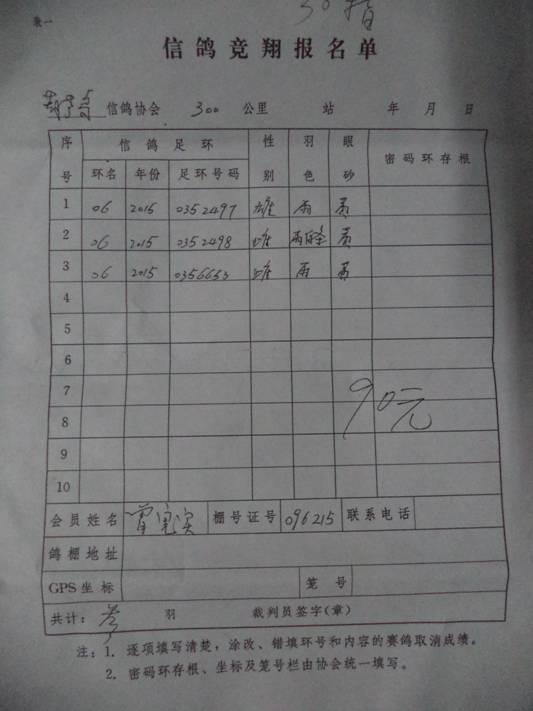 表一
30指
信鸽竞翔报名单
信鸽协会 300 公里 站 年 月 日
序号 信鸽足环 性别 羽色 眼砂 密码环存根
环名 年份 足环号码
1 06 2015 0352497 雄 雨 黄
2 06 2015 0352498 雌 雨 黄
3 06 2015 0356653 雌 雨 黄
4
5
6
7
8
90元
9
10
会员姓名 曾宪滨 棚号证号 096215 联系电话
鸽棚地址
GPS坐标 笼号
共计: 叁 羽 裁判员签字(章)
注:1. 逐项填写清楚,涂改、错填环号和内容的赛鸽取消成绩。
2. 密码环存根、坐标及笼号栏由协会统一填写。